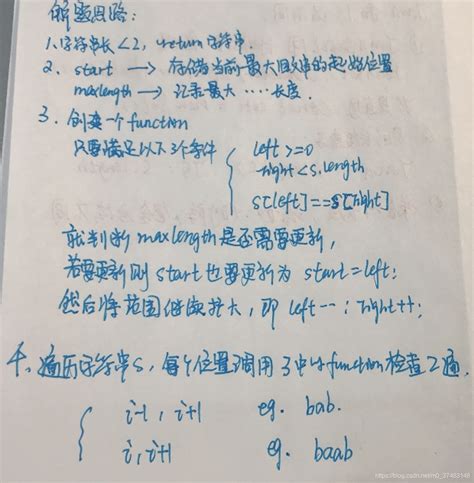 解题思路:
1.字符串长<2, return 字符串.
2. start → 存储当前最大回文串的起始位置
maxlength → 记录最大 ···· 长度.
3. 创建一个function
只要满足以下3个条件 { left >=0
right < s.length
s[left]==s[right]
就判断 maxlength 是否需要更新,
若要更新则 start 也要更新为 start=left;
然后将范围继续扩大, 即 left--; right++;
4、遍历字符串s, 每个位置调用3中的function检查2遍
{ i-1, i+1 eg. bab.
i, i+1 eg. baab
https://blog.csdn.net/m0_37483148